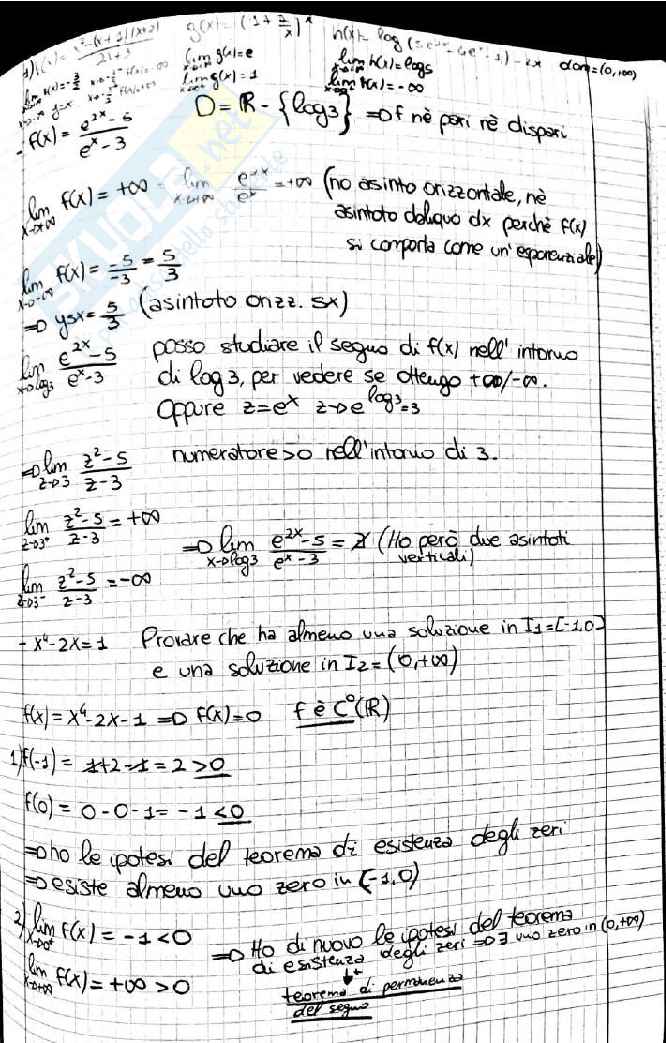 g(x)= (1+2/x)^x
h(x)= log
dom=(0,+∞)
lim g(x)=e
lim g(x)=1
lim h(x)=log5
lim h(x)=-∞
- f(x)= (e^2x-5)/(e^x-3) D=ℝ-{log3} ⇒ f nè pari nè dispari
lim x→+∞ f(x)=+∞ = lim x→+∞ e^2x/e^x =+∞ (no asinto orizzontale, nè
asintoto obliquo dx perchè f(x)
si comporta come un'esponenziale)
lim x→-∞ f(x)= -5/-3 = 5/3
⇒ ysx= 5/3 (asintoto orizz. sx)
lim x→log3 (e^2x-5)/(e^x-3) posso studiare il segno di f(x) nell'intorno
di log3, per vedere se ottengo +∞/-∞.
Oppure z=e^x z→e^log3=3
⇒ lim z→3 (z²-5)/(z-3) numeratore>0 nell'intorno di 3.
lim z→3⁺ (z²-5)/(z-3) =+∞
⇒ lim x→log3 (e^2x-5)/(e^x-3) = ∄ (Ho però due asintoti
verticali)
lim z→3⁻ (z²-5)/(z-3) =-∞
- x⁴-2x=1 Provare che ha almeno una soluzione in I1=[-1,0]
e una soluzione in I2=(0,+∞)
f(x)=x⁴-2x-1 ⇒ f(x)=0 f è C⁰(ℝ)
1) f(-1)= 1+2-1=2>0
f(0)= 0-0-1=-1<0
⇒ ho le ipotesi del teorema di esistenza degli zeri
⇒ esiste almeno uno zero in (-1,0)
2) lim x→0⁺ f(x)=-1<0 ⇒ Ho di nuovo le ipotesi del teorema
di esistenza degli zeri ⇒ ∃ uno zero in (0,+∞)
lim x→+∞ f(x)=+∞>0
teorema di permanenza
del segno